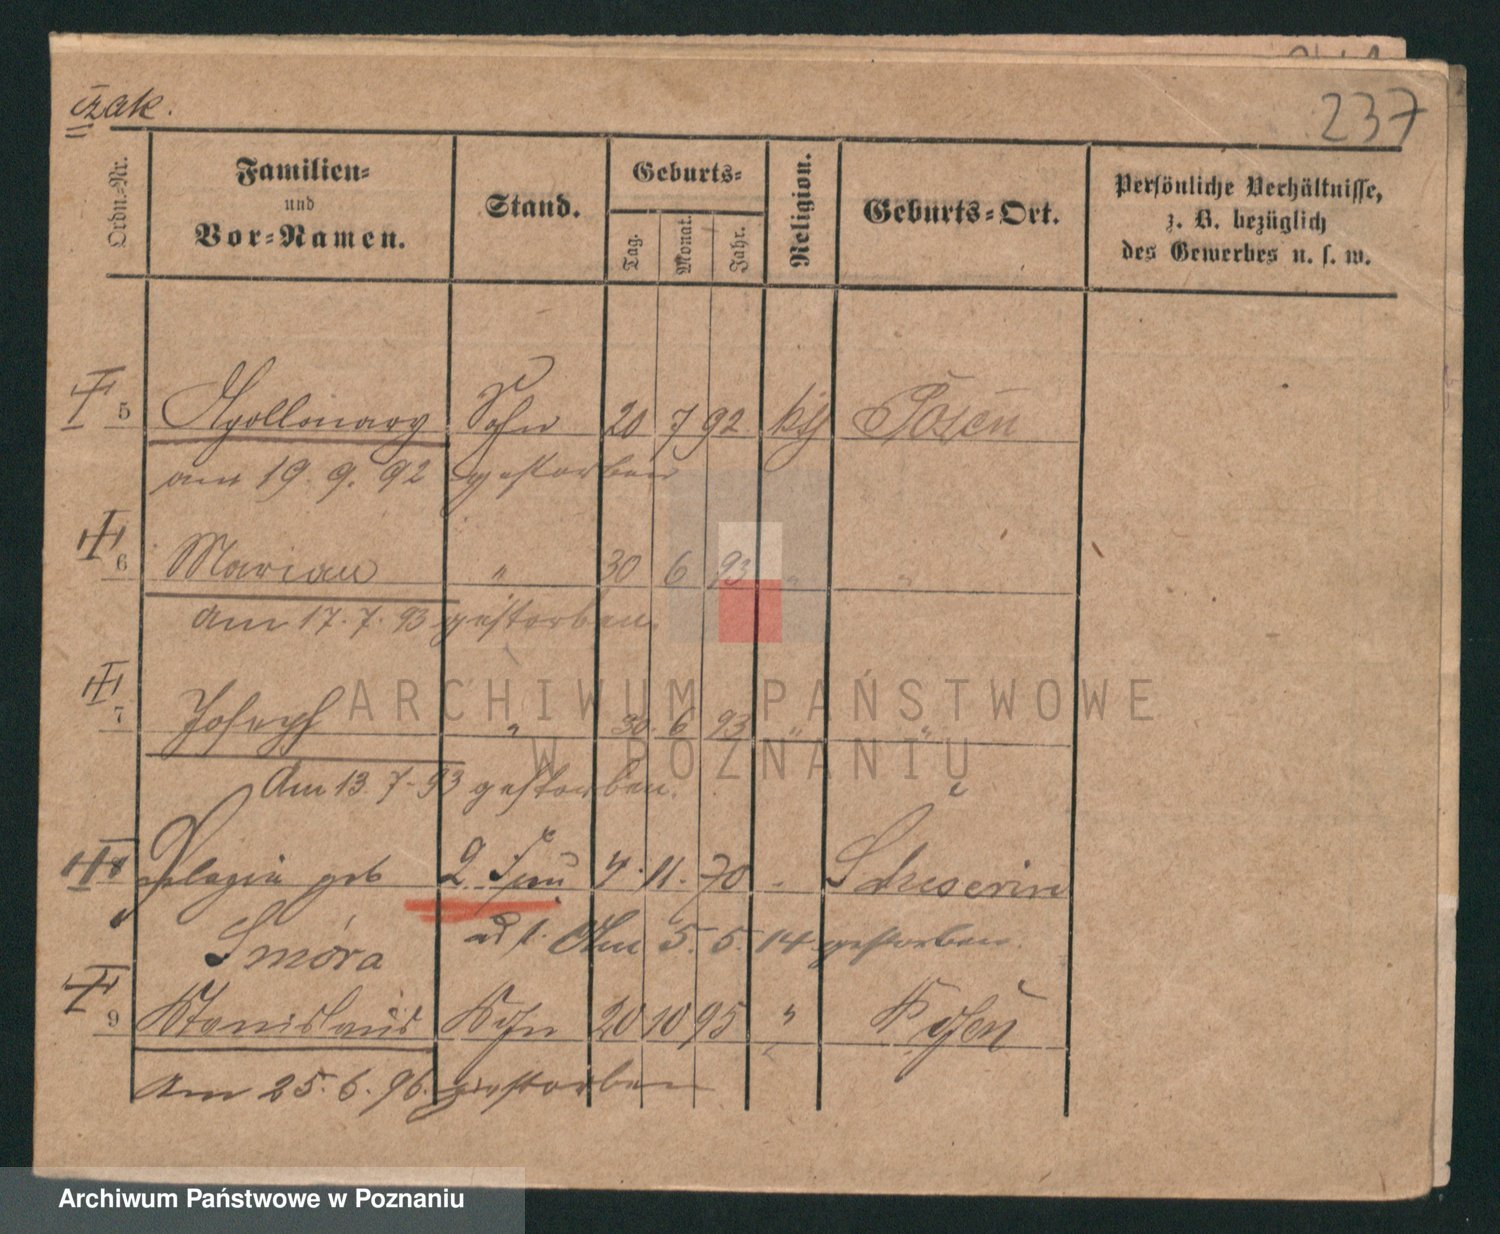 czak.
237
Ordn.-Nr.
Familien-
und
Vor-Namen.
Stand.
Geburts-
Tag.
Monat.
Jahr.
Religion.
Geburts-Ort.
Persönliche Verhältnisse,
z. B. bezüglich
des Gewerbes u. s. w.
5 Apollinary Sohn 20 7 92 kth Posen
am 19. 9. 92 gestorben
6 Marian " 30 6 93 " "
Am 17. 7. 93 gestorben.
7 Joseph " 30. 6 93 " "
Am 13. 7. 93 gestorben.
8 Pelagia geb 2. Frau 4. 11. 70 Schwerin
Smóra Am 5. 5. 14 gestorben.
9 Stanislaus Sohn 20 10 95 " Posen
Am 25. 6. 96. gestorben
ARCHIWUM PAŃSTWOWE
W POZNANIU
Archiwum Państwowe w Poznaniu